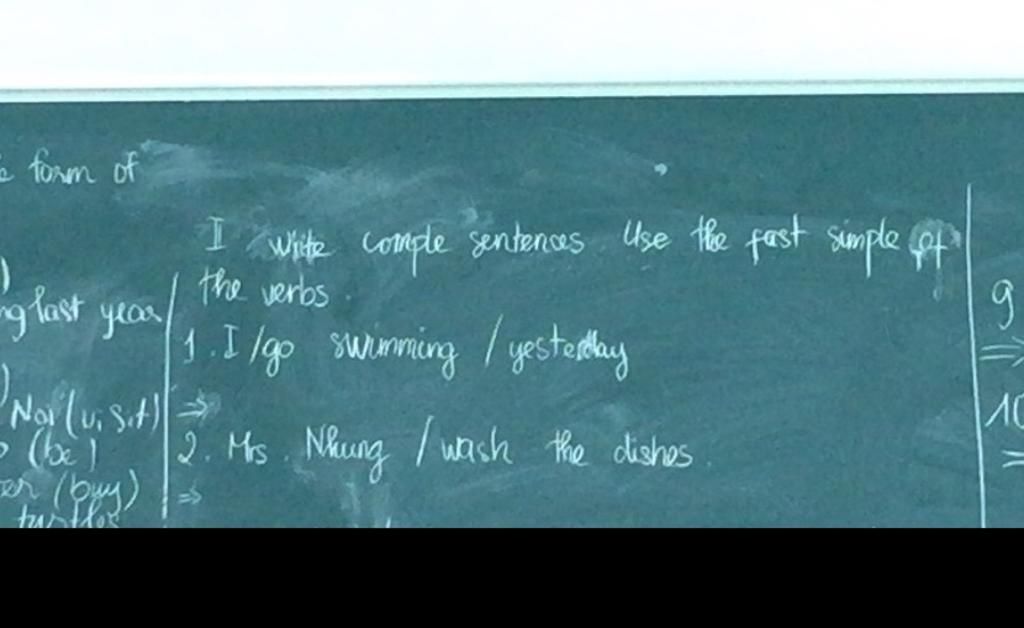 form of
I write comple sentences. Use the past simple of
the verbs.
1. I / go swimming / yesterday
⇒
2. Mrs. Nhung / wash the dishes.
⇒
last year
Noi (visit)
(be)
(buy)
turtles
9
⇒
10
⇒